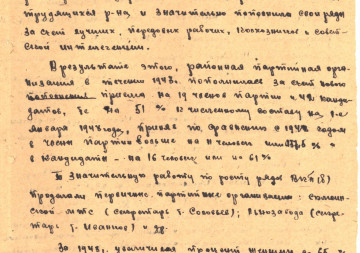 трудящихся р-на и значительно пополнила свои ряды
за счет лучших, передовых рабочих, колхозников и совет-
ской интеллигенции.
В результате этого, районная партийная орга-
низация в течении 1948г. пополнилась за счет нового
пополнения приема на 19 членов партии и 42 канди-
датов, т.е. на 51% к численному составу на 1-е
января 1948 года, приняв по сравнению с 1947 годом
в члены партии больше на 11 человек или
в кандидаты - на 16 человек или на 61%
Значительную работу по росту рядов ВКП(б)
Проделали первичные партийные организации:
ской МТС (секретарь т. Соловьев), Льнозавода (секре-
тарь т. Иванков) и др.
За 1948г. увеличился процент женщин с